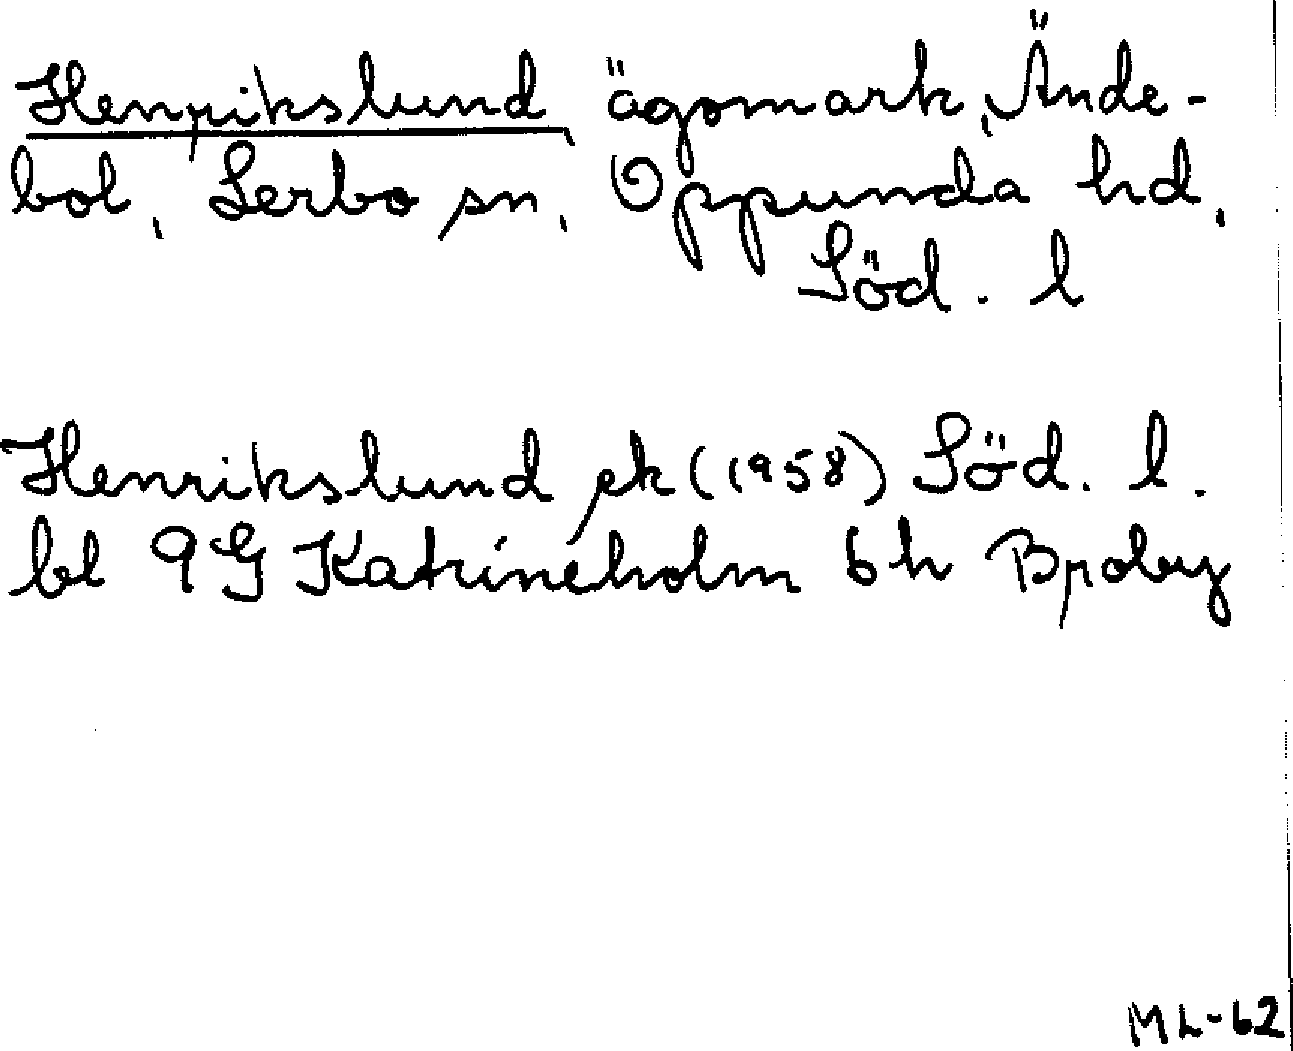 Henrikslund, ägomark, Ände-
bol, Lerbo sn, Oppunda hd,
Söd. l
Henrikslund, ek (1958) Söd. l.
bl 9G Katrineholm 6h Broby
ML-62